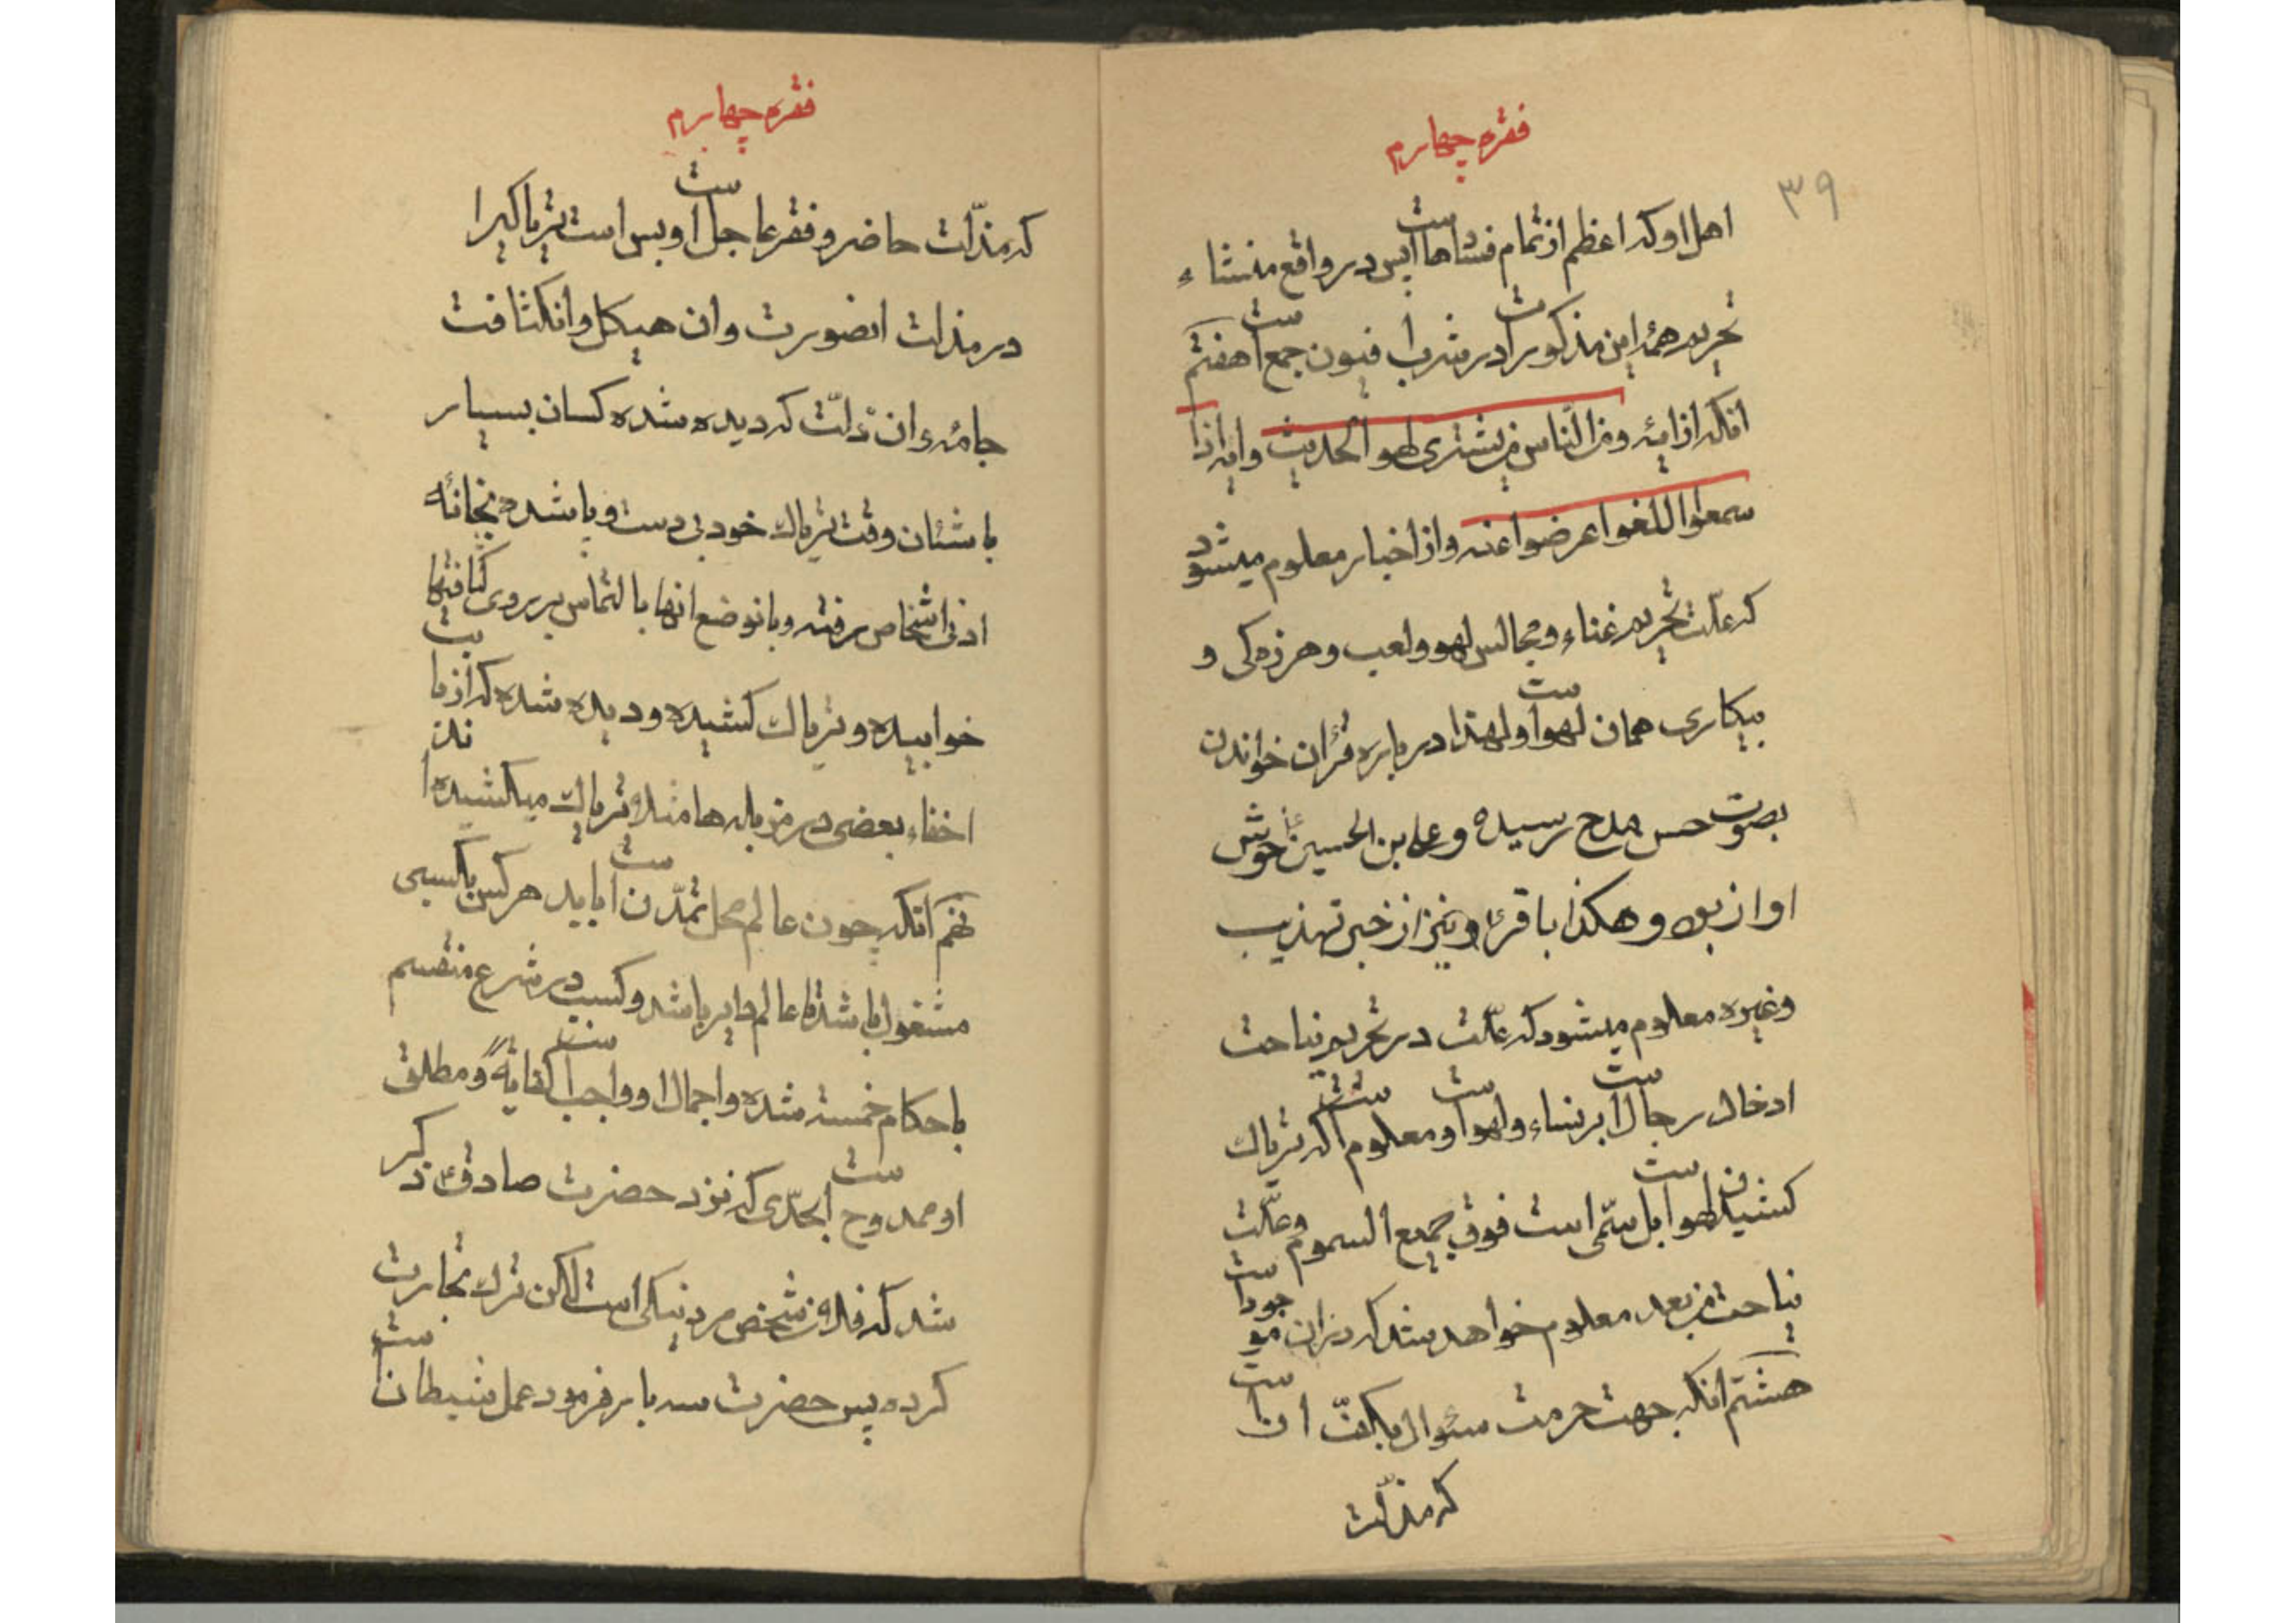 فقره چهارم
۳۹
اهل او که اعظم از تمام فسادها است پس در واقع منشاء
تحریم همه این مذکورات در شراب افیون جمع است هفتم
انکه از ایه ومن الناس من یشتری لهو الحدیث وایه اذا
سمعوا اللغو اعرضوا عنه واز اخبار معلوم میشود
که علّت تحریم غناء و مجالس لهو ولعب وهرزه کی و
بیکاری همان لهو است ولهذا در باره قرآن خواندن
بصوت حسن مدح رسیده وعلی بن الحسین ع خوش
اواز بود وهکذا باقر ع ونیز از خبر تهذیب
وغیره معلوم میشود که علّت در تحریم نیاحت
ادخال رجال است بر نساء ولهو است ومعلوم است که تریاک
کشیدن لهو است بل سمّی است فوق جمیع السموم وعلّت
نیاحت من بعد معلوم خواهد شد که در ان موجود است
هشتم انکه جهت حرمت سئوال بکفّ ان است
که مذلّت
فقره چهارم
که مذلّت حاضر وفقر عاجل است وبس است تریاکی را
در مذلت انصورت وان هیکل وانکثافت
جامه وان ذلّت که دیده شده کسان بسیار
با شئان وقت تریاک خود بی دست وپا شده بخانهٔ
ادنی اشخاص رفته وبانوضع انها بالتماس بر روی کثافتها
خوابیده وتریاک کشیده ودیده شده که از بابت
اخفاء بعضی در مزبله ها مثلا تریاک میکشیده اند
نهم انکه چون عالم محل تمدّن است باید هر کس بکسبی
مشغول باشد تا عالم دایر باشد وکسب در شرع منقسم
باحکام خمسه شده واجمال او واجب است کفایهً ومطلق
او ممدوح است بحدّی که نزد حضرت صادق ع ذکر
شد که فلان شخص مرد نیکی است لکن ترک تجارت
کرده پس حضرت سه بار فرمود عمل شیطان است